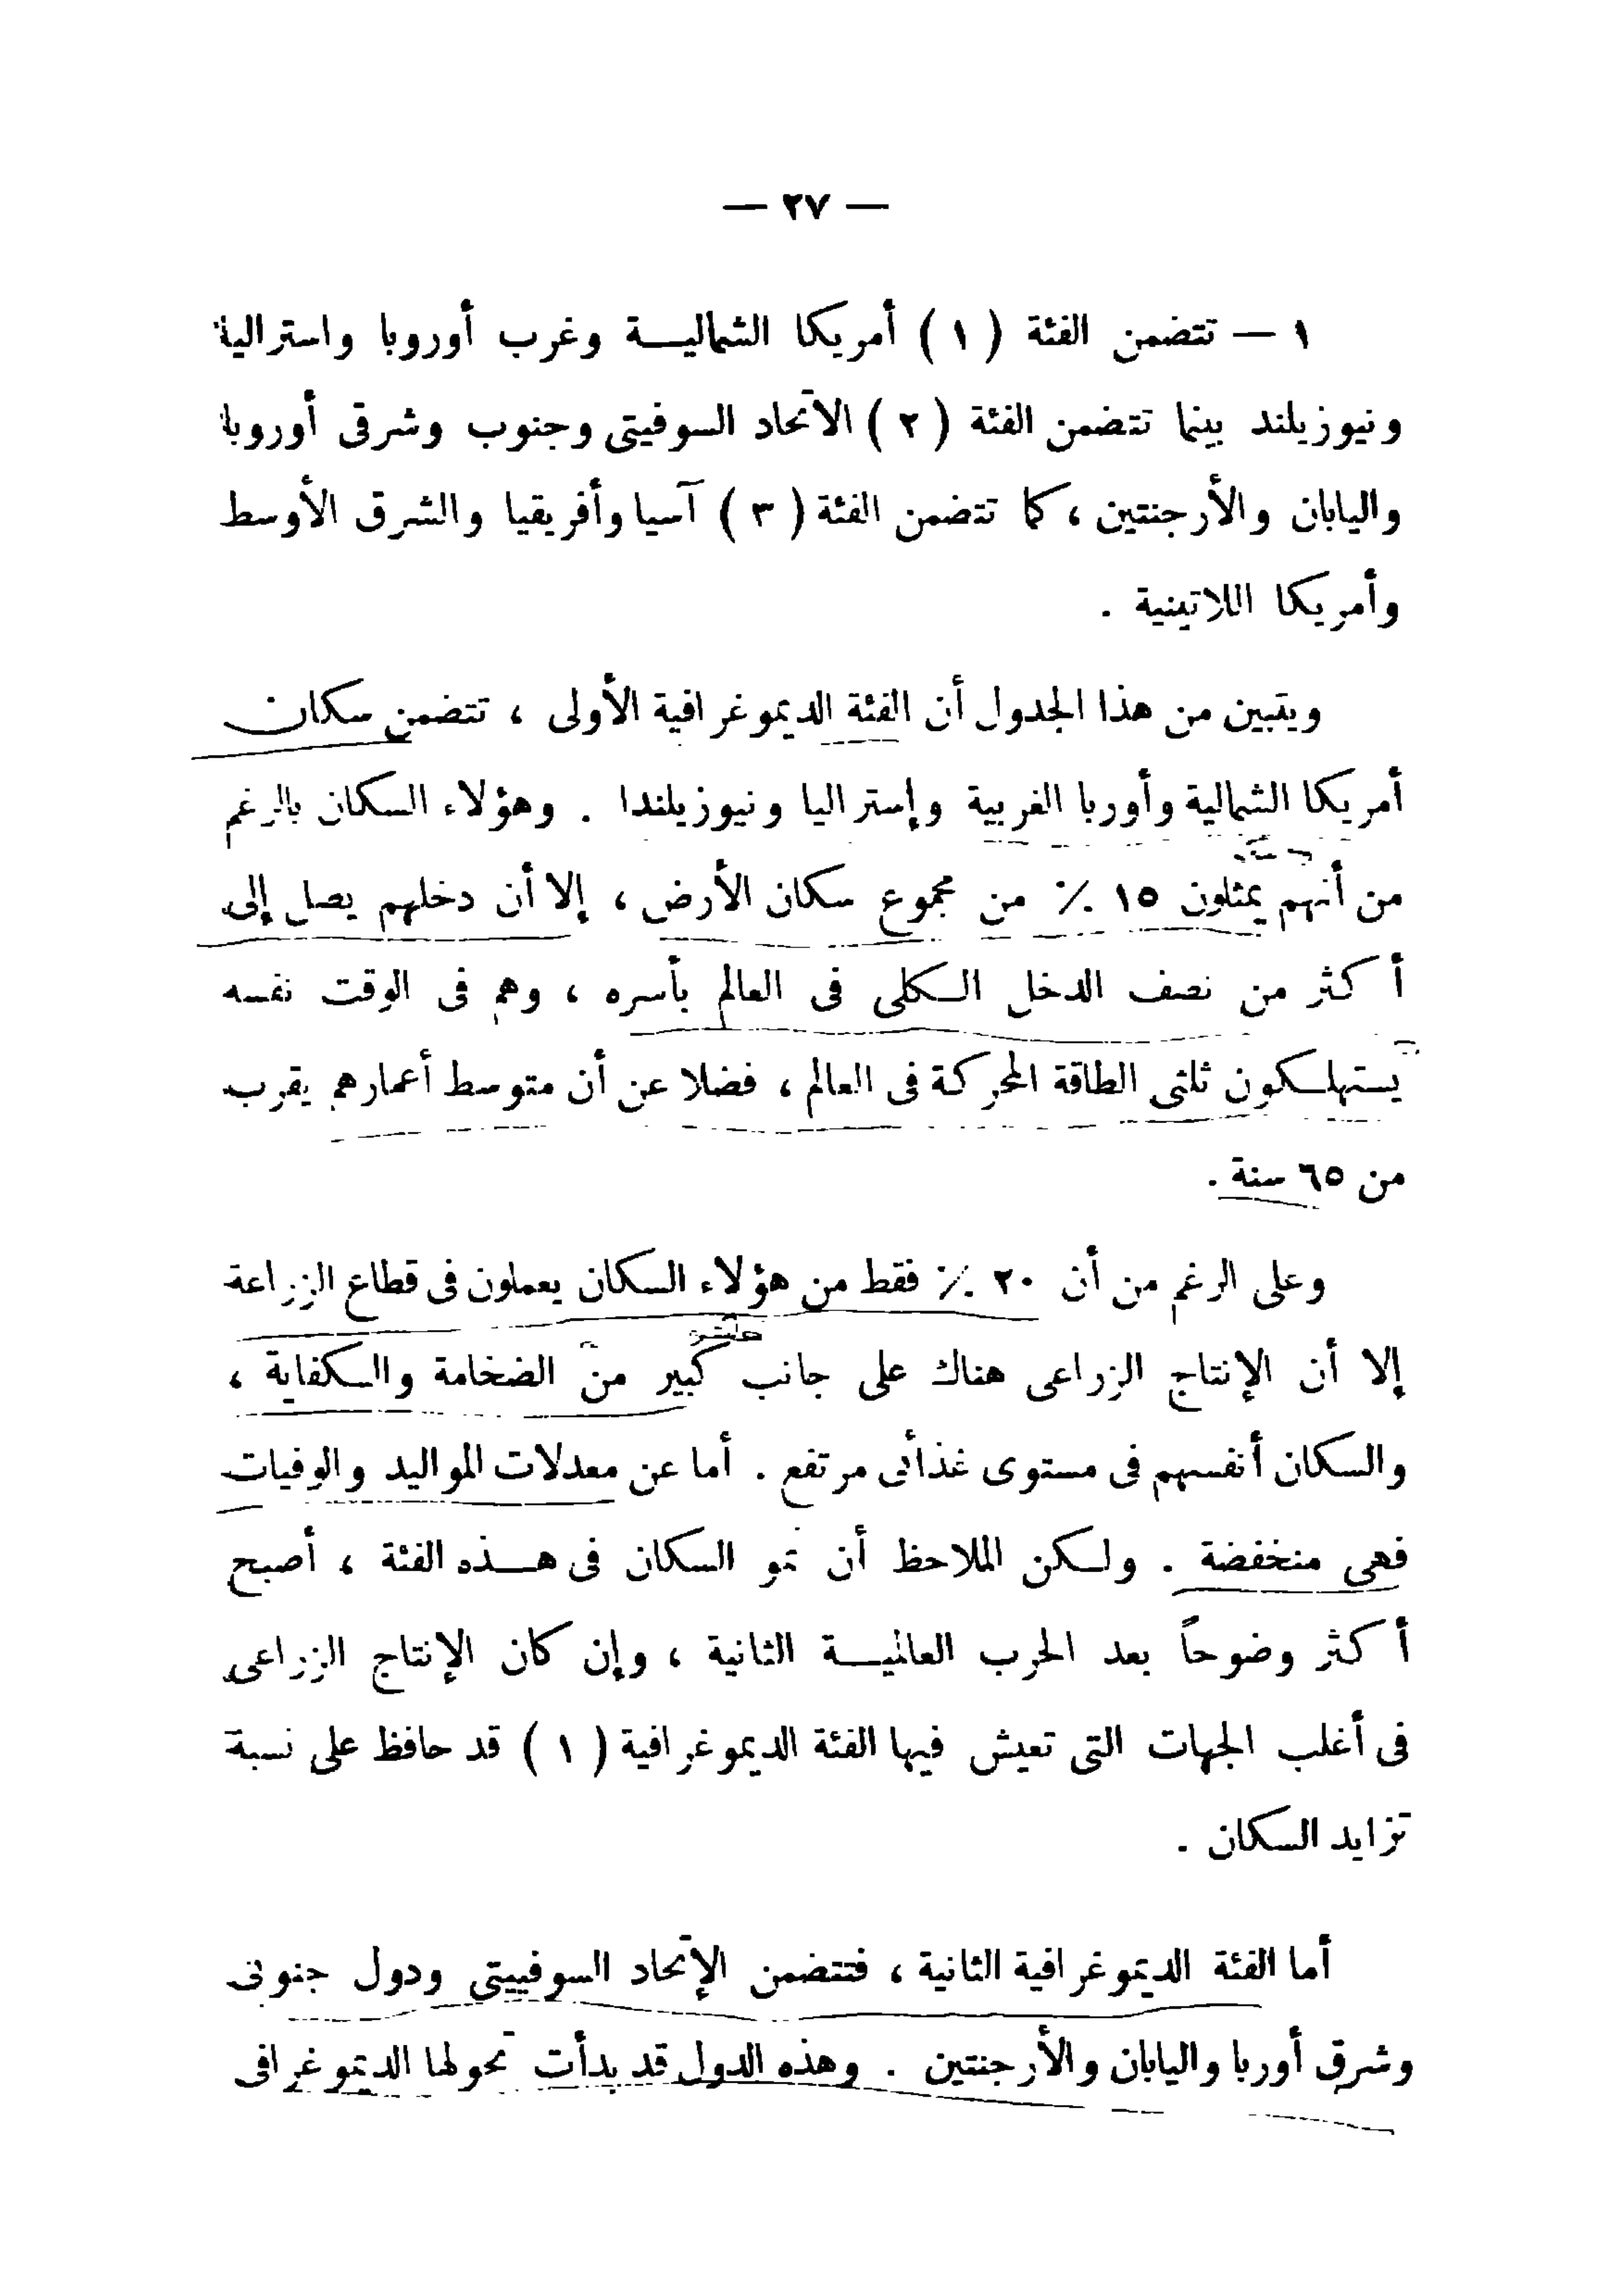 — ٢٧ —
١ — تتضمن الفئة ( ١ ) أمريكا الشماليـــة وغرب أوروبا واستراليا
ونيوزيلند بينما تتضمن الفئة ( ٢ ) الاتحاد السوفيتى وجنوب وشرقى أوروبا
واليابان والأرجنتين ، كما تتضمن الفئة ( ٣ ) آسيا وأفريقيا والشرق الأوسط
وأمريكا اللاتينية .
ويتبين من هذا الجدول أن الفئة الديموغرافية الأولى ، تتضمن سكان
أمريكا الشمالية وأوربا الغربية وإستراليا ونيوزيلندا . وهؤلاء السكان بالرغم
من أنهم يمثلون ١٥ ٪ من مجموع سكان الأرض ، إلا أن دخلهم يصل إلى
أكثر من نصف الدخل الـكلى فى العالم بأسره ، وهم فى الوقت نفسه
يستهلـكون ثلثى الطاقة المحركة فى العالم ، فضلا عن أن متوسط أعمارهم يقرب
من ٦٥ سنة .
وعلى الرغم من أن ٢٠ ٪ فقط من هؤلاء السكان يعملون فى قطاع الزراعة
إلا أن الإنتاج الزراعى هناك على جانب كبير من الضخامة والـكفاية ،
والسكان أنفسهم فى مستوى غذائى مرتفع . أما عن معدلات المواليد والوفيات
فهى منخفضة . ولـكن الملاحظ أن نمو السكان فى هـــذه الفئة ، أصبح
أكثر وضوحاً بعد الحرب العالميـــة الثانية ، وإن كان الإنتاج الزراعى
فى أغلب الجهات التى تعيش فيها الفئة الديموغرافية ( ١ ) قد حافظ على نسبة
تزايد السكان .
أما الفئة الديموغرافية الثانية ، فتتضمن الإتحاد السوفييتى ودول جنوبى
وشرق أوربا واليابان والأرجنتين . وهذه الدول قد بدأت تحولها الديموغرافى